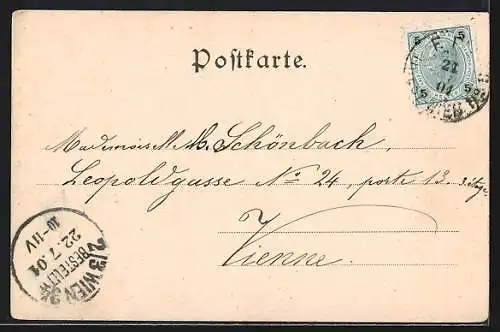 Postkarte.
5 5
21
04
WIEN
Mademoiselle M. Schönbach,
Leopoldgasse No 24, porte 13. 3. étage
Vienne.
2/3 WIEN
BESTELLT
22.7.04
10-11V